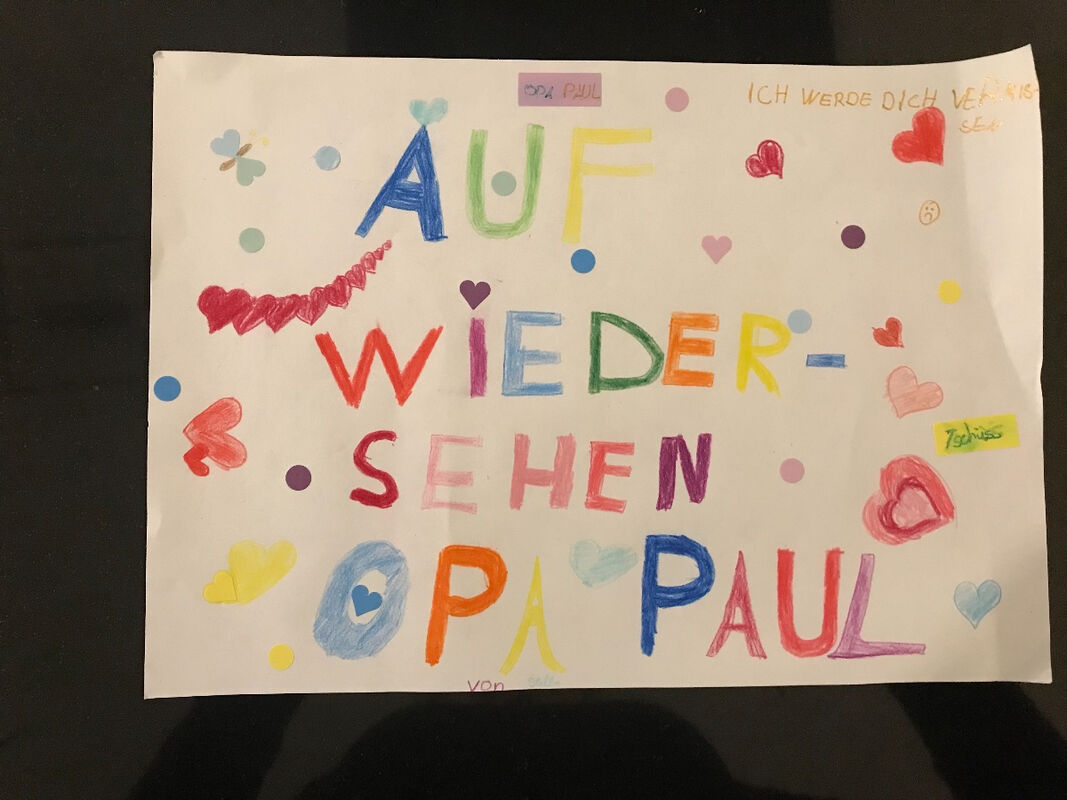 OPA PAUL
ICH WERDE DICH VERMIS-
SEN
AUF
WIEDER-
SEHEN
Tschüss
OPA PAUL
von